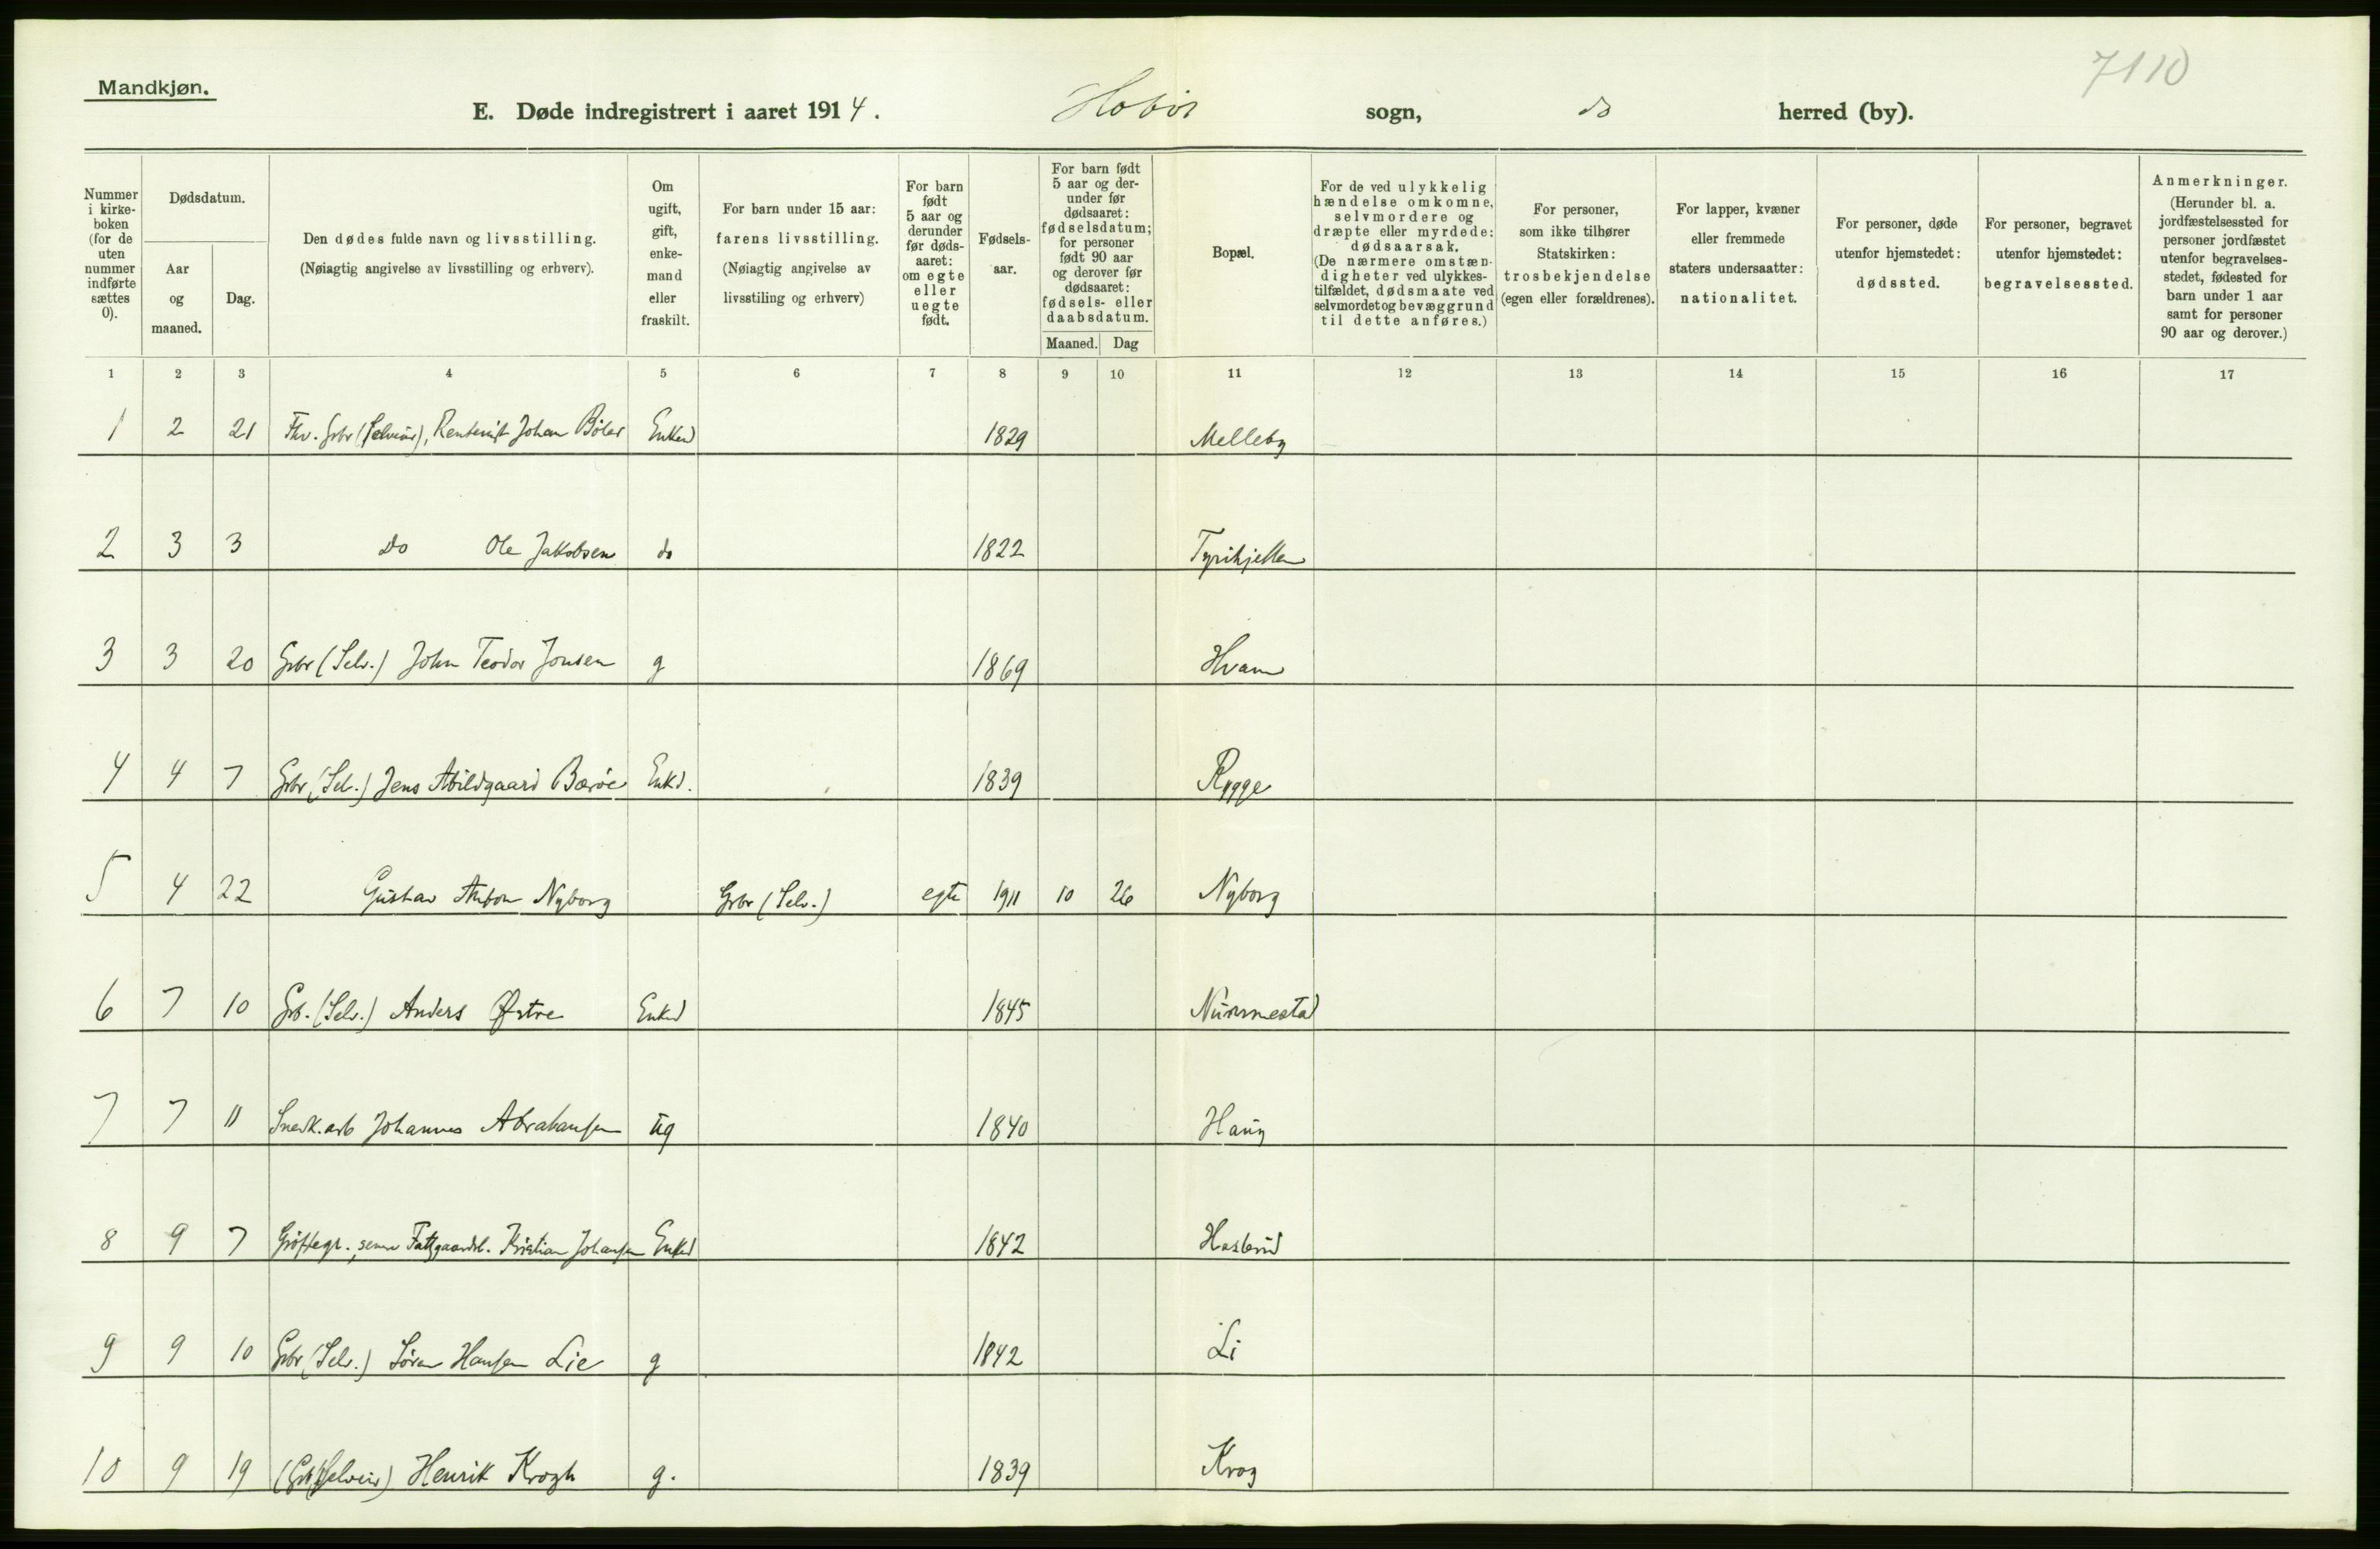 7110
Mandkjøn.
E. Døde indregistrert i aaret 1914. Hobøl sogn, do herred (by).
Nummer i kirke-boken (for de uten nummer indførte sættes 0).
Dødsdatum.
Aar og maaned.
Dag.
Den dødes fulde navn og livsstilling.
(Nøiagtig angivelse av livsstilling og erhverv).
Om ugift, gift, enke-mand eller fraskilt.
For barn under 15 aar: farens livsstilling.
(Nøiagtig angivelse av livsstiling og erhverv)
For barn født 5 aar og derunder før døds-aaret: om egte eller uegte født.
Fødsels-aar.
For barn født 5 aar og der-under før dødsaaret: fødselsdatum; for personer født 90 aar og derover før dødsaaret: fødsels- eller daabsdatum.
Maaned. Dag
Bopæl.
For de ved ulykkelig hændelse omkomne, selvmordere og dræpte eller myrdede: dødsaarsak.
(De nærmere omstæn-digheter ved ulykkes-tilfældet, dødsmaate ved selvmordet og bevæggrund til dette anføres.)
For personer, som ikke tilhører Statskirken: trosbekjendelse (egen eller forældrenes).
For lapper, kvæner eller fremmede staters undersaatter: nationalitet.
For personer, døde utenfor hjemstedet: dødssted.
For personer, begravet utenfor hjemstedet: begravelsessted.
Anmerkninger.
(Herunder bl. a. jordfæstelsessted for personer jordfæstet utenfor begravelses-stedet, fødested for barn under 1 aar samt for personer 90 aar og derover.)
1 2 3 4 5 6 7 8 9 10 11 12 13 14 15 16 17
1 2 21 Fhv. Grbr (Selveier), Rentenist Johan Böler Enkem 1829 Melleby
2 3 3 Do Ole Jakobsen do 1822 Tyrihjellen
3 3 20 Grbr (Selv.) John Teodor Jonsen g 1869 Hvam
4 4 7 Grbr (Sel.) Jens Abildgaard Barøe Enkd. 1839 Rygge
5 4 22 Gustav Anton Nyborg Grbr (Selv.) egte 1911 10 26 Nyborg
6 7 10 Grb. (Selv.) Anders Østre Enkd 1845
7 7 11 Snedk.arb Johannes Abrahansen ug 1840 Haug
8 9 7 Grøftegr., senere Kristian Johansen Enkd 1842 Haslerud
9 9 10 Grbr (Selv.) Sören Hansen Lie g 1842 Li
10 9 19 (Grb (Selveier) Henrik Krogh g. 1839 Krog